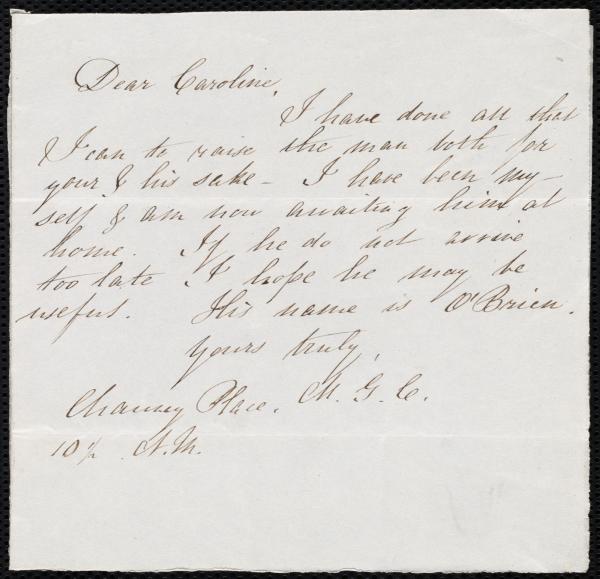 Dear Caroline,
I have done all that
I can to raise the man both for
your & his sake - I have been my-
self & am now awaiting him at
home. If he do not arrive
too late I hope he may be
useful. His name is O'Brien.
Yours truly,
M. G. C.
Chauncy Place.
10 1/2 A.M.